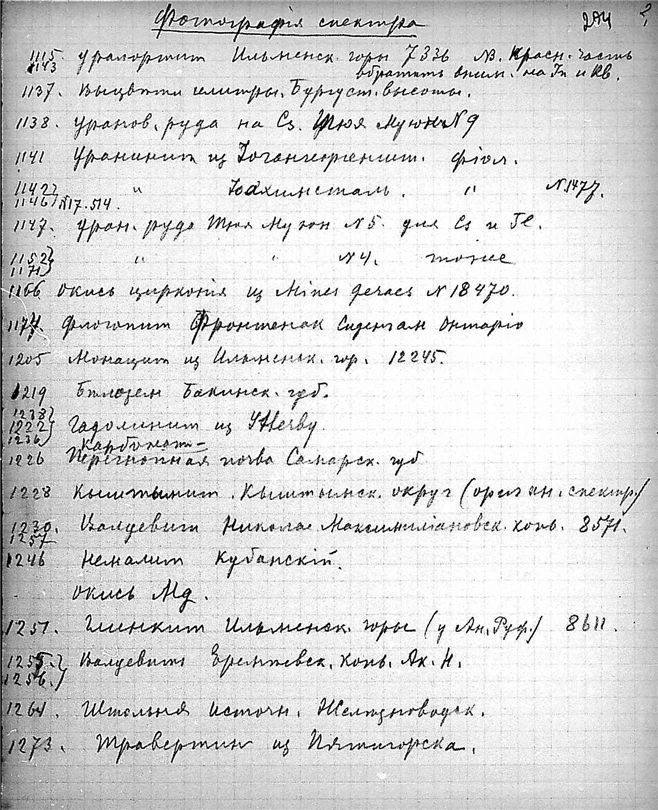 Фотографія спектра 204
1115. ураноортит Ильменск. горы 7336 NB. Красн. часть
1143 обратить вним. на In и Rb.
1137. Выцветы селитры. Бугуст. высоты.
1138. Уранов. руда на Cs. Тюя Муюн N 9
1141 Уранинит из Іоганнгеоргеншт. фіол.
1142 " Іоахимсталь. " N 1477.
1146 N 17.514.
1147. уран. руда Тюя Муюн N 5. для Cs и Tl.
1152 } " " N 4. тоже
1171 }
1166 окись цирконія из Minas geraes N 18470.
1177. Флогопит Фронтенак Сиденгам Онтаріо
1205 Монацит из Ильменск. гор. 12245.
1219 Бѣлозем Бакинск. губ.
1238 }
1222 } Гадолинит из Ytterby.
1236 } Карбонатн-
1226 Перегнойная почва Самарск. губ
1228 Кыштымит. Кыштымск. округ (ориг ан. спектр.)
1230. Валуевит Николае Максимиліановск. копь. 8571.
1257
1246 Немалит Кубанскій.
окись Mg.
1251. Глинкит Ильменск. горы (у Ан. Руф.) 8611.
1255. } Валуевит Еремеевск. копь. Ак. Н.
1256. }
1264. Штольня источн. Желѣзноводск.
1273. Травертин из Пятигорска.